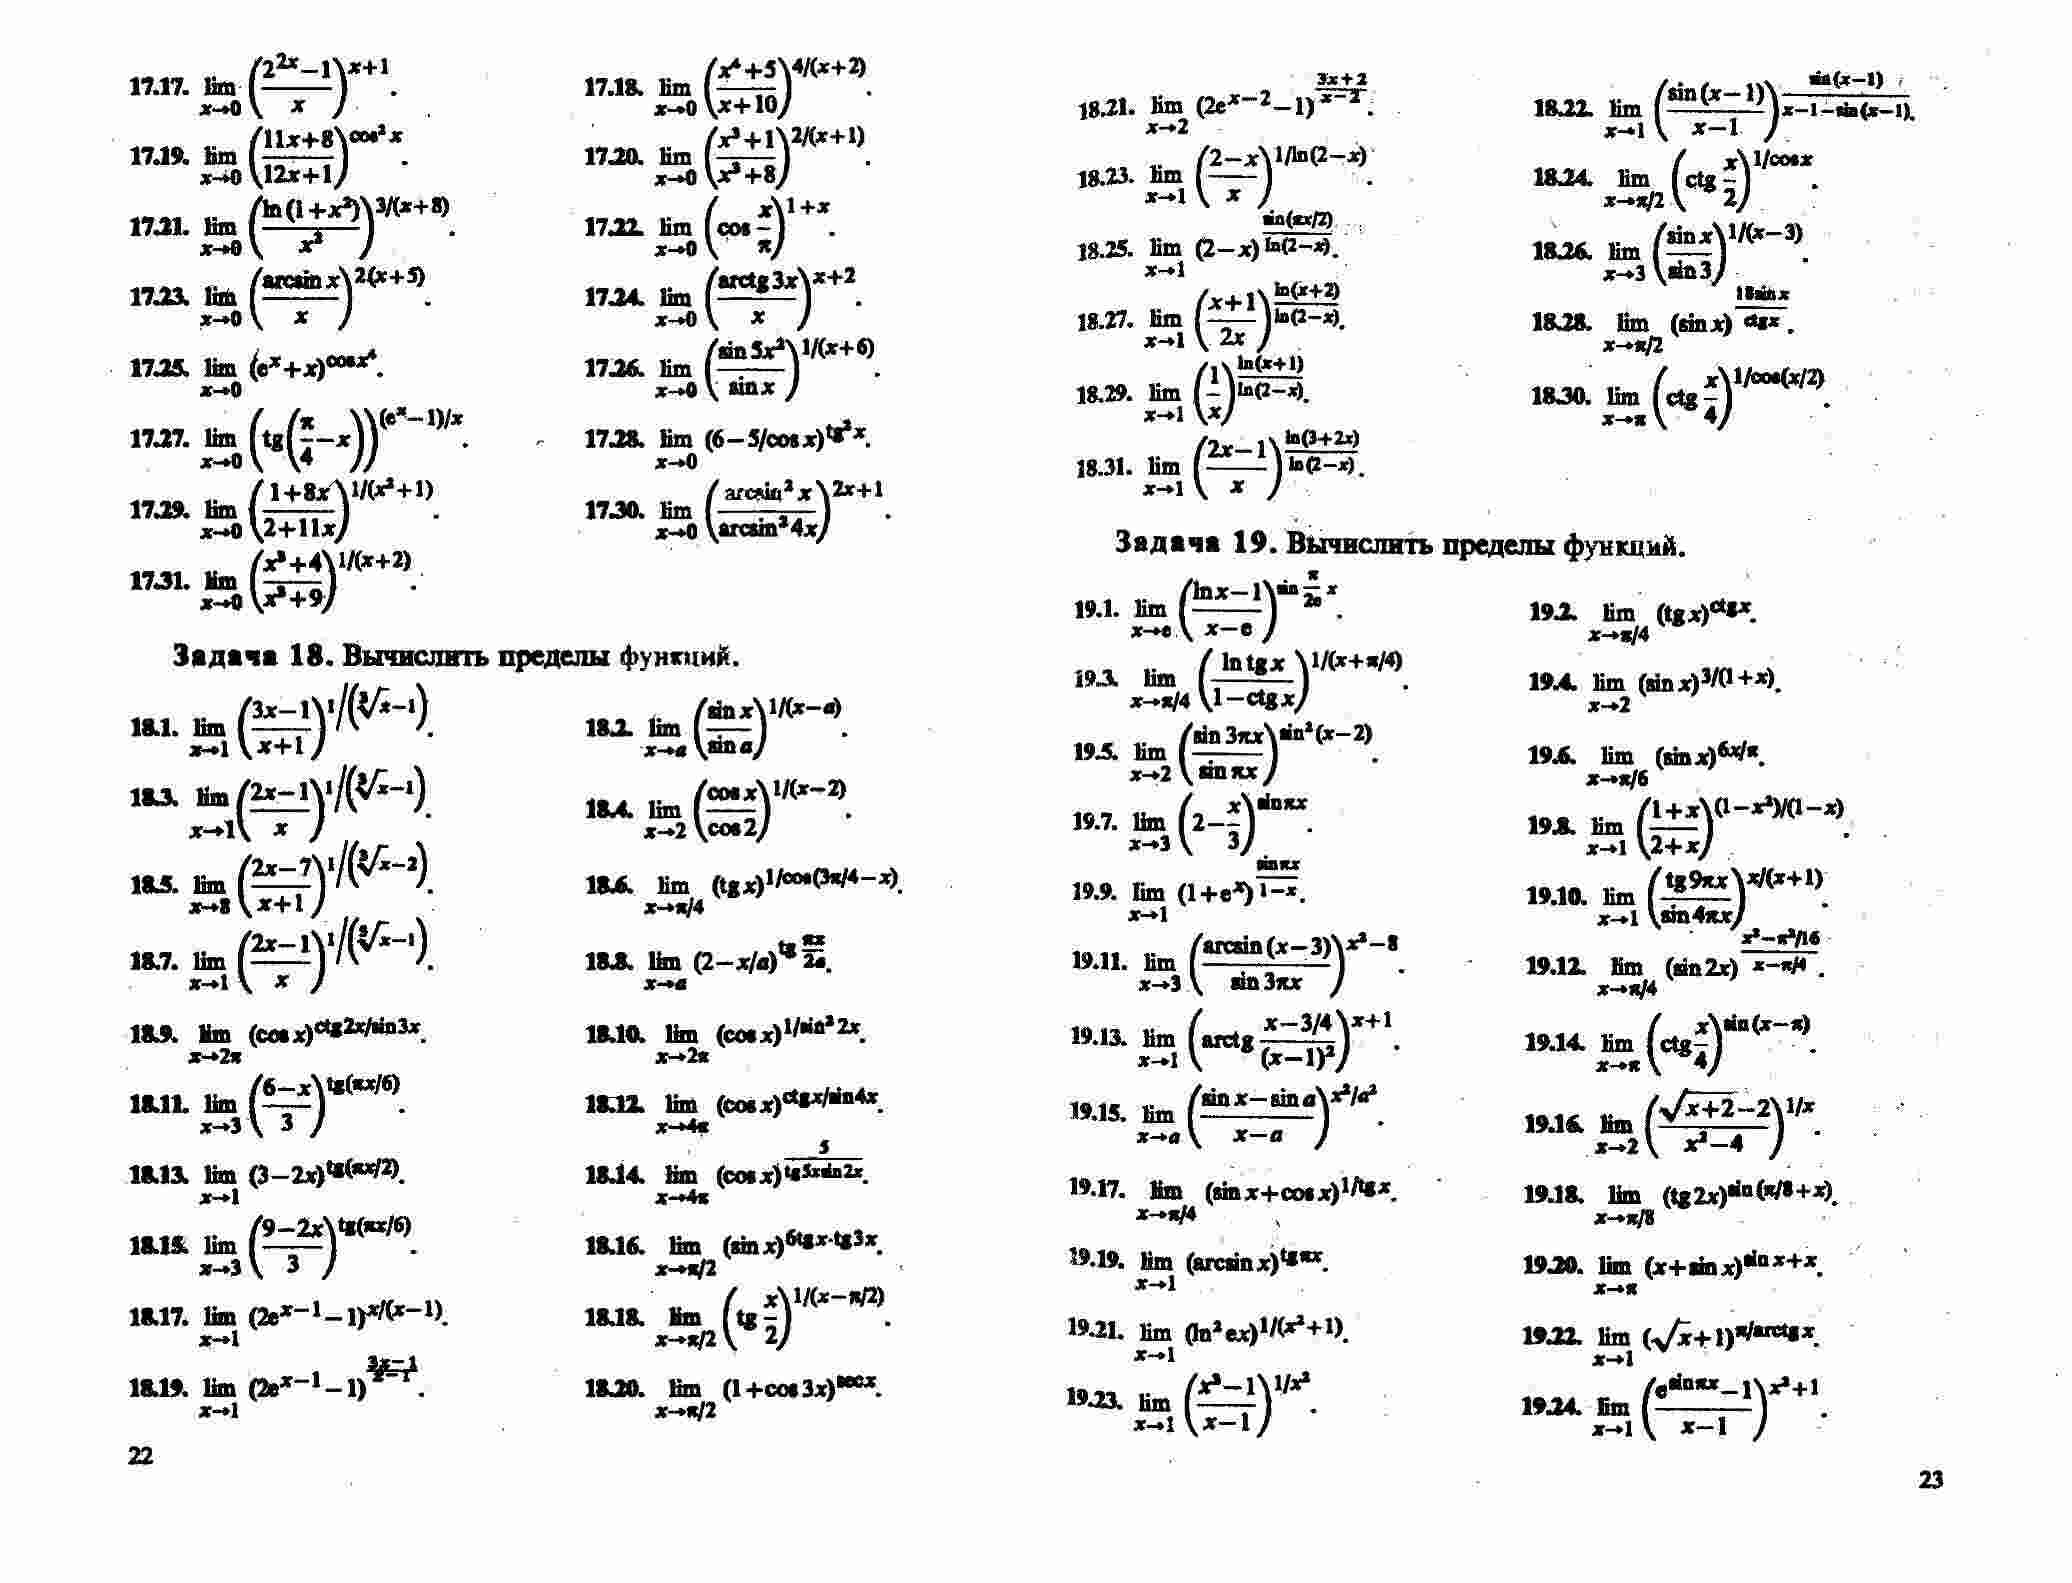 17.17. lim x→0 ((2^{2x}−1)/x)^{x+1}. 17.18. lim x→0 ((x⁴+5)/(x+10))^{4/(x+2)}.
17.19. lim x→0 ((11x+8)/(12x+1))^{cos² x}. 17.20. lim x→0 ((x³+1)/(x³+8))^{2/(x+1)}.
17.21. lim x→0 (ln(1+x²)/x²)^{3/(x+8)}. 17.22. lim x→0 (cos x/π)^{1+x}.
17.23. lim x→0 (arcsin x/x)^{2(x+5)}. 17.24. lim x→0 (arctg 3x/x)^{x+2}.
17.25. lim x→0 (e^x+x)^{cos x⁴}. 17.26. lim x→0 (sin 5x²/sin x)^{1/(x+6)}.
17.27. lim x→0 (tg(π/4−x))^{(e^x−1)/x}. 17.28. lim x→0 (6−5/cos x)^{tg² x}.
17.29. lim x→0 ((1+8x)/(2+11x))^{1/(x²+1)}. 17.30. lim x→0 (arcsin² x/arcsin² 4x)^{2x+1}.
17.31. lim x→0 ((x³+4)/(x³+9))^{1/(x+2)}.
Задача 18. Вычислить пределы функций.
18.1. lim x→1 ((3x−1)/(x+1))^{1/(∛x−1)}. 18.2. lim x→a (sin x/sin a)^{1/(x−a)}.
18.3. lim x→1 ((2x−1)/x)^{1/(∛x−1)}. 18.4. lim x→2 (cos x/cos 2)^{1/(x−2)}.
18.5. lim x→8 ((2x−7)/(x+1))^{1/(∛x−2)}. 18.6. lim x→π/4 (tg x)^{1/cos(3π/4−x)}.
18.7. lim x→1 ((2x−1)/x)^{1/(∛x−1)}. 18.8. lim x→a (2−x/a)^{tg πx/2a}.
18.9. lim x→2π (cos x)^{ctg 2x/sin 3x}. 18.10. lim x→2π (cos x)^{1/sin² 2x}.
18.11. lim x→3 ((6−x)/3)^{tg(πx/6)}. 18.12. lim x→4π (cos x)^{ctg x/sin 4x}.
18.13. lim x→1 (3−2x)^{tg(πx/2)}. 18.14. lim x→4π (cos x)^{5/(tg 5x sin 2x)}.
18.15. lim x→3 ((9−2x)/3)^{tg(πx/6)}. 18.16. lim x→π/2 (sin x)^{6tg x·tg 3x}.
18.17. lim x→1 (2e^{x−1}−1)^{x/(x−1)}. 18.18. lim x→π/2 (tg x/2)^{1/(x−π/2)}.
18.19. lim x→1 (2e^{x−1}−1)^{(3x−1)/(x−1)}. 18.20. lim x→π/2 (1+cos 3x)^{sec x}.
22
18.21. lim x→2 (2e^{x−2}−1)^{(3x+2)/(x−2)}. 18.22. lim x→1 (sin(x−1)/(x−1))^{sin(x−1)/(x−1−sin(x−1))}.
18.23. lim x→1 ((2−x)/x)^{1/ln(2−x)}. 18.24. lim x→π/2 (ctg x/2)^{1/cos x}.
18.25. lim x→1 (2−x)^{sin(πx/2)/ln(2−x)}. 18.26. lim x→3 (sin x/sin 3)^{1/(x−3)}.
18.27. lim x→1 ((x+1)/2x)^{ln(x+2)/ln(2−x)}. 18.28. lim x→π/2 (sin x)^{18 sin x/ctg x}.
18.29. lim x→1 (1/x)^{ln(x+1)/ln(2−x)}. 18.30. lim x→π (ctg x/4)^{1/cos(x/2)}.
18.31. lim x→1 ((2x−1)/x)^{ln(3+2x)/ln(2−x)}.
Задача 19. Вычислить пределы функций.
19.1. lim x→e ((ln x−1)/(x−e))^{sin π/2e x}. 19.2. lim x→π/4 (tg x)^{ctg x}.
19.3. lim x→π/4 (ln tg x/(1−ctg x))^{1/(x+π/4)}. 19.4. lim x→2 (sin x)^{3/(1+x)}.
19.5. lim x→2 (sin 3πx/sin πx)^{sin²(x−2)}. 19.6. lim x→π/6 (sin x)^{6x/π}.
19.7. lim x→3 (2−x/3)^{sin πx}. 19.8. lim x→1 ((1+x)/(2+x))^{(1−x²)/(1−x)}.
19.9. lim x→1 (1+e^x)^{sin πx/(1−x)}. 19.10. lim x→1 (tg 9πx/sin 4πx)^{x/(x+1)}.
19.11. lim x→3 (arcsin(x−3)/sin 3πx)^{x²−8}. 19.12. lim x→π/4 (sin 2x)^{(x²−π²/16)/(x−π/4)}.
19.13. lim x→1 (arctg (x−3/4)/(x−1)²)^{x+1}. 19.14. lim x→π (ctg x/4)^{sin(x−π)}.
19.15. lim x→a ((sin x−sin a)/(x−a))^{x²/a²}. 19.16. lim x→2 ((√(x+2)−2)/(x²−4))^{1/x}.
19.17. lim x→π/4 (sin x+cos x)^{1/tg x}. 19.18. lim x→π/8 (tg 2x)^{sin(π/8+x)}.
19.19. lim x→1 (arcsin x)^{tg πx}. 19.20. lim x→π (x+sin x)^{sin x+x}.
19.21. lim x→1 (ln² ex)^{1/(x²+1)}. 19.22. lim x→1 (√x+1)^{π/arctg x}.
19.23. lim x→1 ((x³−1)/(x−1))^{1/x²}. 19.24. lim x→1 ((e^{sin πx}−1)/(x−1))^{x²+1}.
23